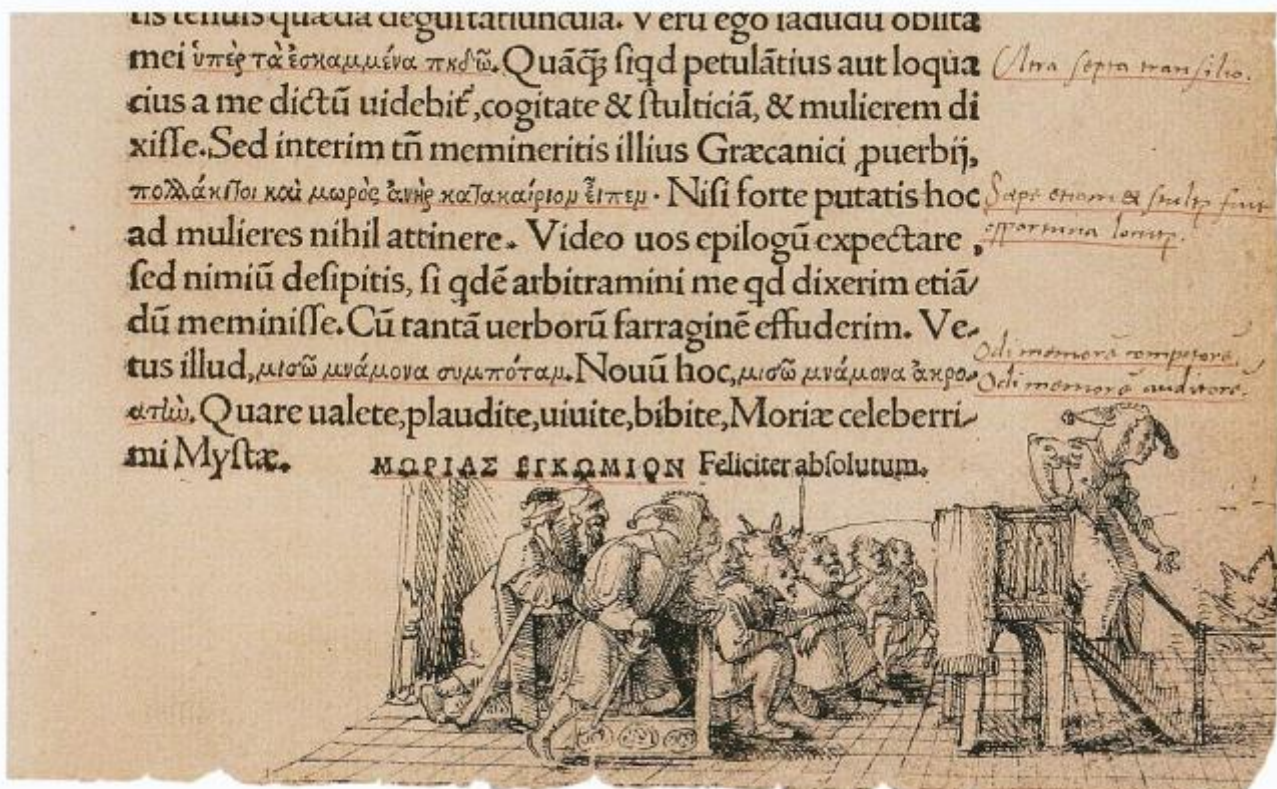 tis tenuis quædã degustatiuncula. Verũ ego iãdudũ oblita
mei ὑπὲρ τὰ ἐσκαμμένα πηδῶ. Quãq̃ȝ siqd petulãtius aut loqua
cius a me dictũ uidebit̃, cogitate & stulticiã, & mulierem di
xisse. Sed interim tñ memineritis illius Græcanici ꝓuerbij,
πολλάκιτοι καὶ μωρὸς ἀνὴρ κατακαίριον εἶπεν. Nisi forte putatis hoc
ad mulieres nihil attinere. Video uos epilogũ expectare,
sed nimiũ desipitis, si qdẽ arbitramini me qd dixerim etiã/
dũ meminisse. Cũ tantã uerborũ farraginẽ effuderim. Ve/
tus illud, μισῶ μνάμονα συμπόταν. Nouũ hoc, μισῶ μνάμονα ἀκρο/
ατὴν. Quare ualete, plaudite, uiuite, bibite, Moriæ celeberri/
mi Mystæ.
ΜΩΡΙΑΣ ΕΓΚΩΜΙΟΝ Feliciter absolutum.
Ultra septa transilio.
Sæpe etiam & stultus fuit
opportuna locutus.
Odi memorẽ compotorẽ.
Odi memorẽ auditorẽ.